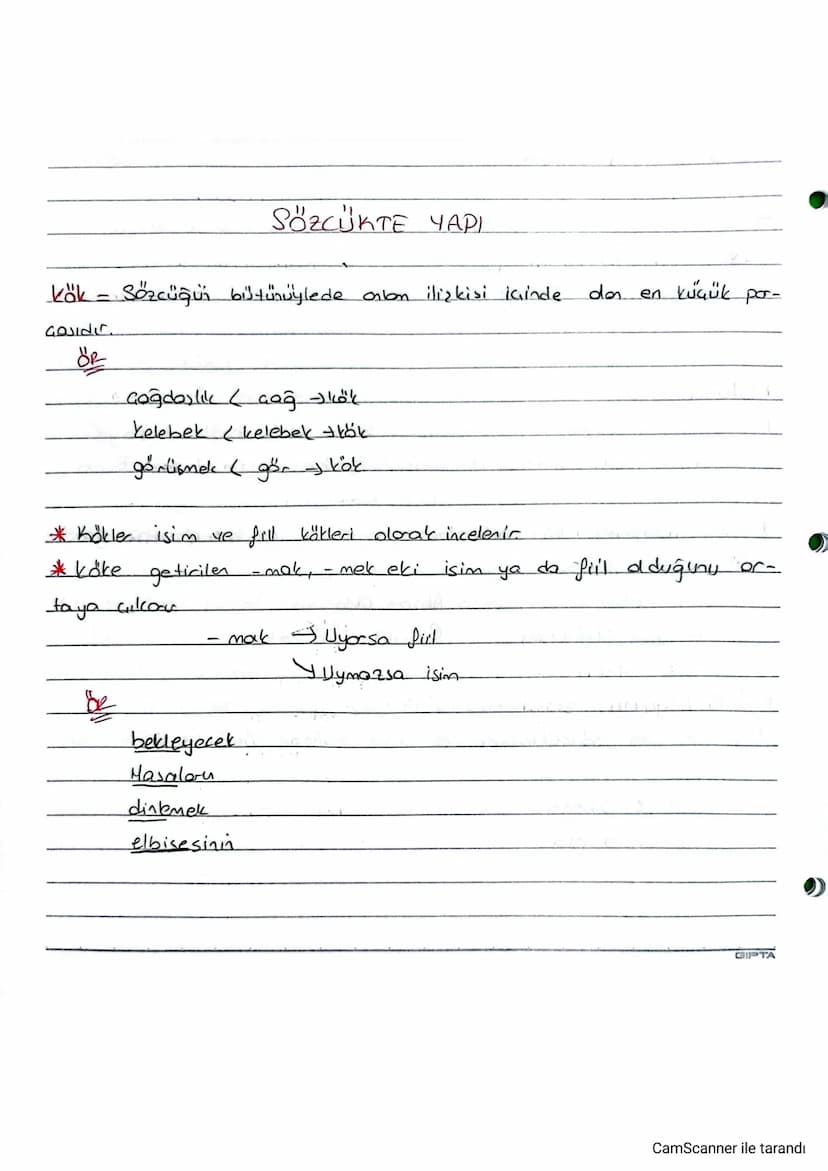 SÖZCÜKTE YAPI
Kök = Sözcüğün bütünüylede anlam ilişkisi içinde olan en küçük par-
çasıdır.
ÖR
çağdaşlık ( çağ → kök
kelebek ( kelebek → kök
görüşmek ( gör → kök
* Kökler isim ve fiil kökleri olarak incelenir
* Köke getirilen -mak, -mek eki isim ya da fiil olduğunu or-
taya çıkarır
- mak → Uyorsa fiil
↘ Uymazsa isim
ÖR
bekleyecek
Masaları
dinlemek
elbisesinin
GIPTA
CamScanner ile tarandı